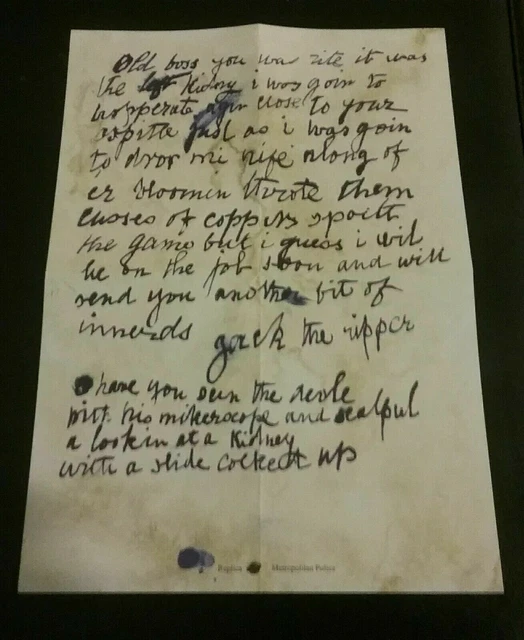 Old boss you was rite it was
the left kidny i was goin to
hopperate agin close to your
ospitle just as i was goin
to dror mi nife along of
er bloomin throte them
cusses of coppers spoilt
the game but i guess i wil
be on the job soon and will
send you another bit of
innerds
Jack the ripper
O have you seen the devle
with his mikerscope and scalpul
a lookin at a kidney
with a slide cocked up
Replica Metropolitan Police